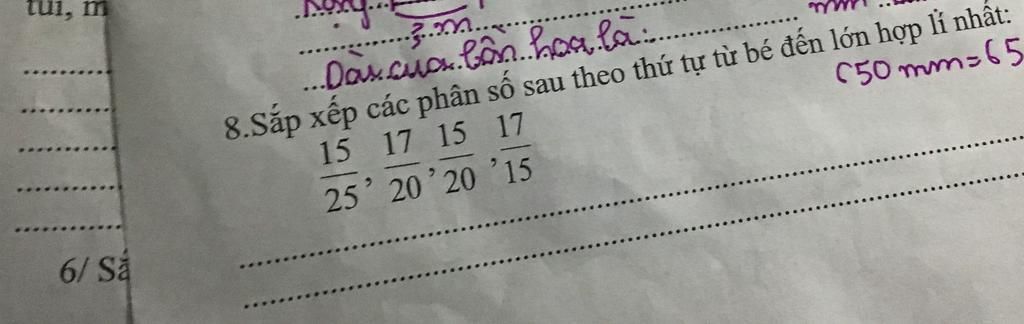 túi, m
3 m
Dài của bồn hoa là:
8.Sắp xếp các phân số sau theo thứ tự từ bé đến lớn hợp lí nhất:
650 mm = 65
15/25, 17/20, 15/20, 17/15
6/ Sắ